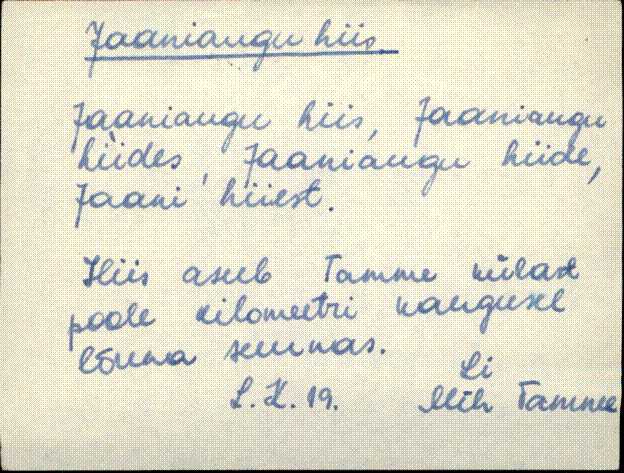 Jaaniaugu hiis
Jaaniaugu hiis, Jaaniaugu
hiides, Jaaniaugu hiide,
Jaani hiiest.
Hiis aseb Tamme külast
poole kilomeetri kaugusel
lõuna suunas.
Li
L.K. 19. Mih Tamme